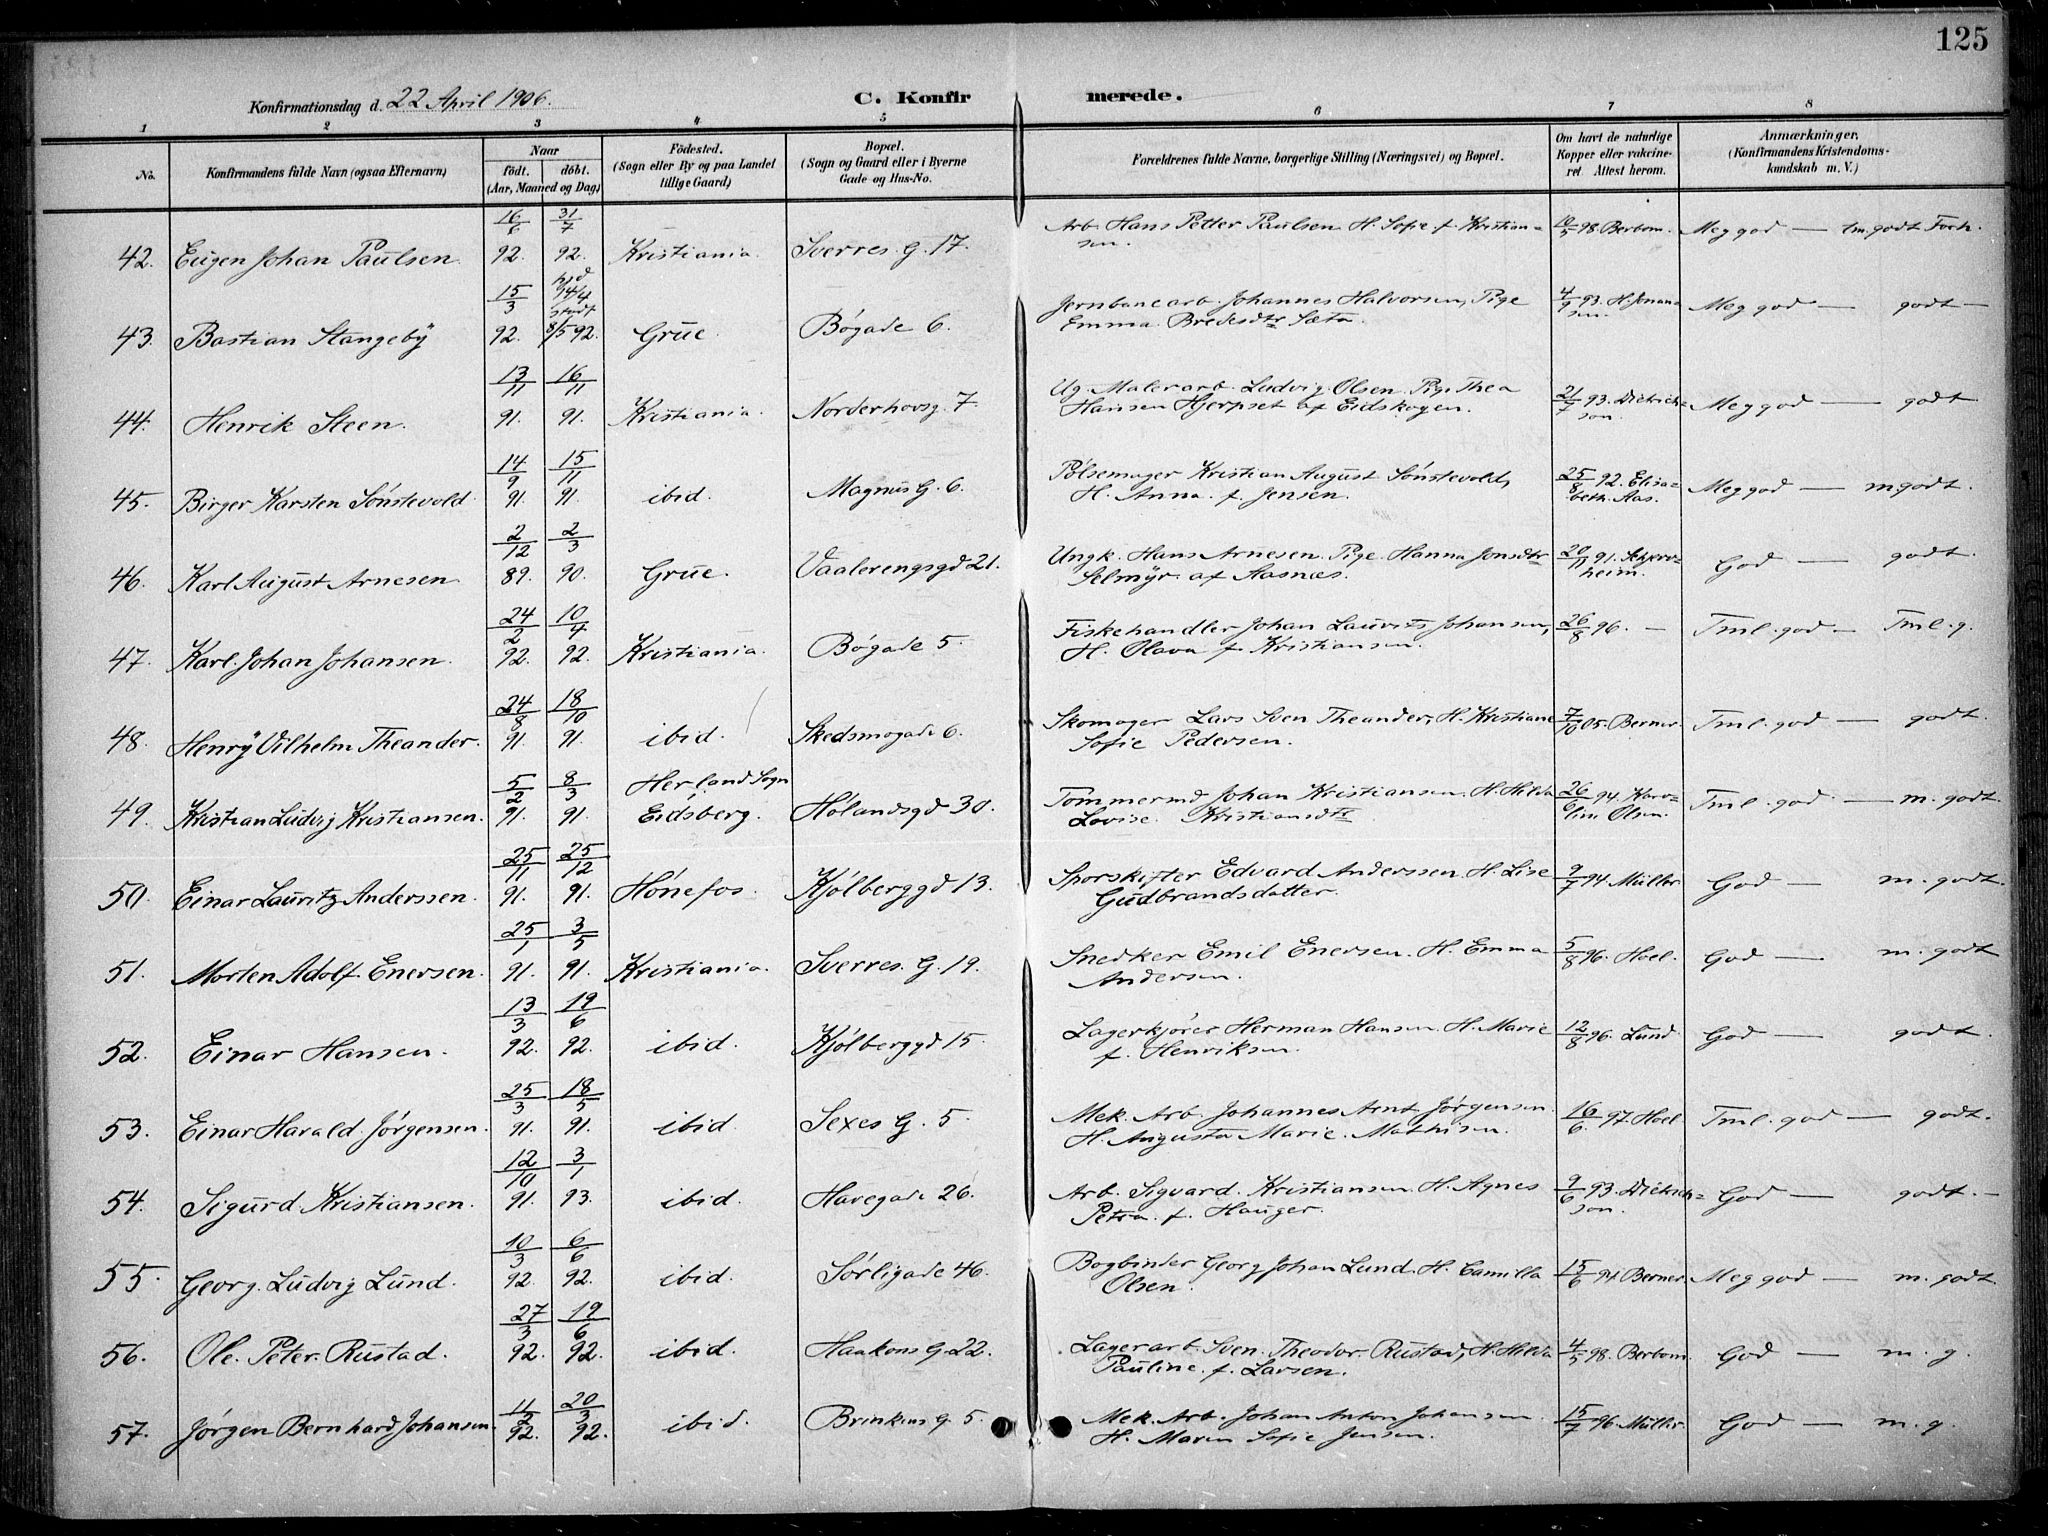 125
Konfirmationsdag d. 22 April 1906. C. Konfirmerede.
1 2 3 4 5 6 7 8
No. Konfirmandens fulde Navn (ogsaa Efternavn) Naar født. døbt. (Aar, Maaned og Dag) Fødested. (Sogn eller By og paa Landet tillige Gaard) Bopæl. (Sogn og Gaard eller i Byerne Gade og Hus-No. Forældrenes fulde Navne, borgerlige Stilling (Næringsvei) og Bopæl. Om havt de naturlige Kopper eller vakcineret. Attest herom. Anmærkninger. (Konfirmandens Kristendomskundskab m. V.)
42. Eugen Johan Paulsen. 16/6 92. 31/7 92. Kristiania. Sverres. G. 17. Arb. Hans Petter Paulsen. H. Sofie f. Kristiansen. 10/5 98. Berbom. Meg god — tm. godt Forh.
43. Bastian Stangeby 15/3 92. hjd 14/4 stadf 8/5 92. Grue Bøgade 6. Jernbanearb. Johannes Halvorsen, Pige Emma Bredesdtr Sæta. 4/9 93. H. Jonansen. Meg god — godt —
44. Henrik Steen. 13/11 91. 16/11 91. Kristiania. Norderhovsg. 7 Ug. Malerarb. Ludvig Olsen. Pige Thea Hansen Hjerpset af Eidskogen. 21/7 93. Dietrichson. Meg god — godt
45. Birger Karsten Sønstevold 14/9 91. 15/11 91. ibid. Magnus G. 6. Pølsemager Kristian August Sønstevold, H. Anna f. Jensen. 25/8 92. Elisabeth Aas. Meg god — m godt.
46. Karl August Arnesen 2/12 89. 2/3 90. Grue. Vaalerengsgd 21. Ungk. Hans Arnesen. Pige Hanna Jonsdtr Selmyr af Aasnæs. 20/11 91. God — godt
47. Karl Johan Johansen. 24/2 92. 10/4 92. Kristiania. Bøgade 5. Fiskehandler Johan Laurits Johansen, H. Olava f Kristiansen. 26/8 96. — Tml. god — Tml. g.
48. Henry Vilhelm Theander. 24/8 91. 18/10 91. ibid. Skedsmogade 6. Skomager Lars Sven Theander, H. Kristiane Sofie Pedersen. 7/10 05. Berner. Tml. god — godt.
49. Kristian Ludvig Kristiansen. 5/2 91. 8/3 91. Herland Sogn Eidsberg. Hølandsgd 30. Tømmermd Johan Kristiansen. H. Hilda Lovise Kristiansdtr 26/6 94. Karoline Olsen. Tml. god — m. godt.
50. Einar Lauritz Anderssen. 25/11 91. 25/12 91. Hønefos. Kjølberggd 13. Sporskifter Edvard Anderssen. H. Lise Gudbrandsdatter. 9/7 94. Müller. God — m. godt.
51. Morten Adolf Enersen. 25/1 91. 3/5 91. Kristiania. Sverres. G. 19. Snedker Emil Enersen. H. Emma Andersen. 5/8 96. Hoel. God — m. godt
52. Einar Hansen. 13/3 92. 19/6 92. ibid. Kjølberggd 15. Lagerkjører Herman Hansen. H. Marie f. Henriksen. 12/8 96. Lund. God — godt.
53. Einar Harald Jørgensen. 25/3 91. 18/5 91. ibid. Sexes G. 5 Mek. Arb. Johannes Arnt Jørgensen. H. Augusta Marie Mathisen. 16/6 97. Hoel. Tml. god — godt.
54. Sigurd Kristiansen. 12/10 91. 3/1 93. ibid. Havegade 26. Arb. Sigvard Kristiansen. H. Agnes Petra f. Hauger. 9/6 93. Dietrichson. God — godt. —
55. Georg Ludvig Lund. 10/3 92. 6/6 92. ibid. Sørligade 46. Bogbinder Georg Johan Lund. H. Camilla Olsen. 15/6 94 Berner. Meg god — m. godt.
56. Ole Peter Rustad. 27/3 92. 19/6 92. ibid. Haakons G. 22. Lagerarb. Sven Theodor Rustad, H. Hilda Pauline f. Larsen. 4/5 98. Berbom. God — m. g.
57. Jørgen Bernhard Johansen. 11/2 92. 20/3 92. ibid. Brinkens G. 5. Mek. Arb. Johan Anton Johansen. H. Maren Sofie Jensen. 15/7 96. Müller. God — m. g.